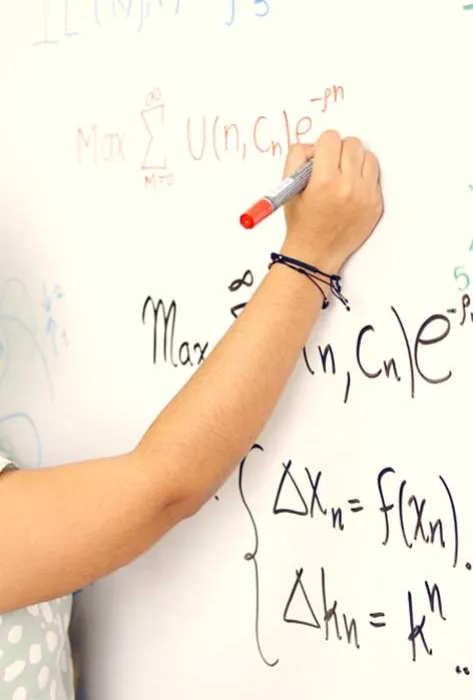 Max ∞ Σ M=0 U(n, Cn)e^-ρn
Max ∞ (n, Cn)e^-ρ
{ ΔXn = f(xn).
Δkn = k^n ..